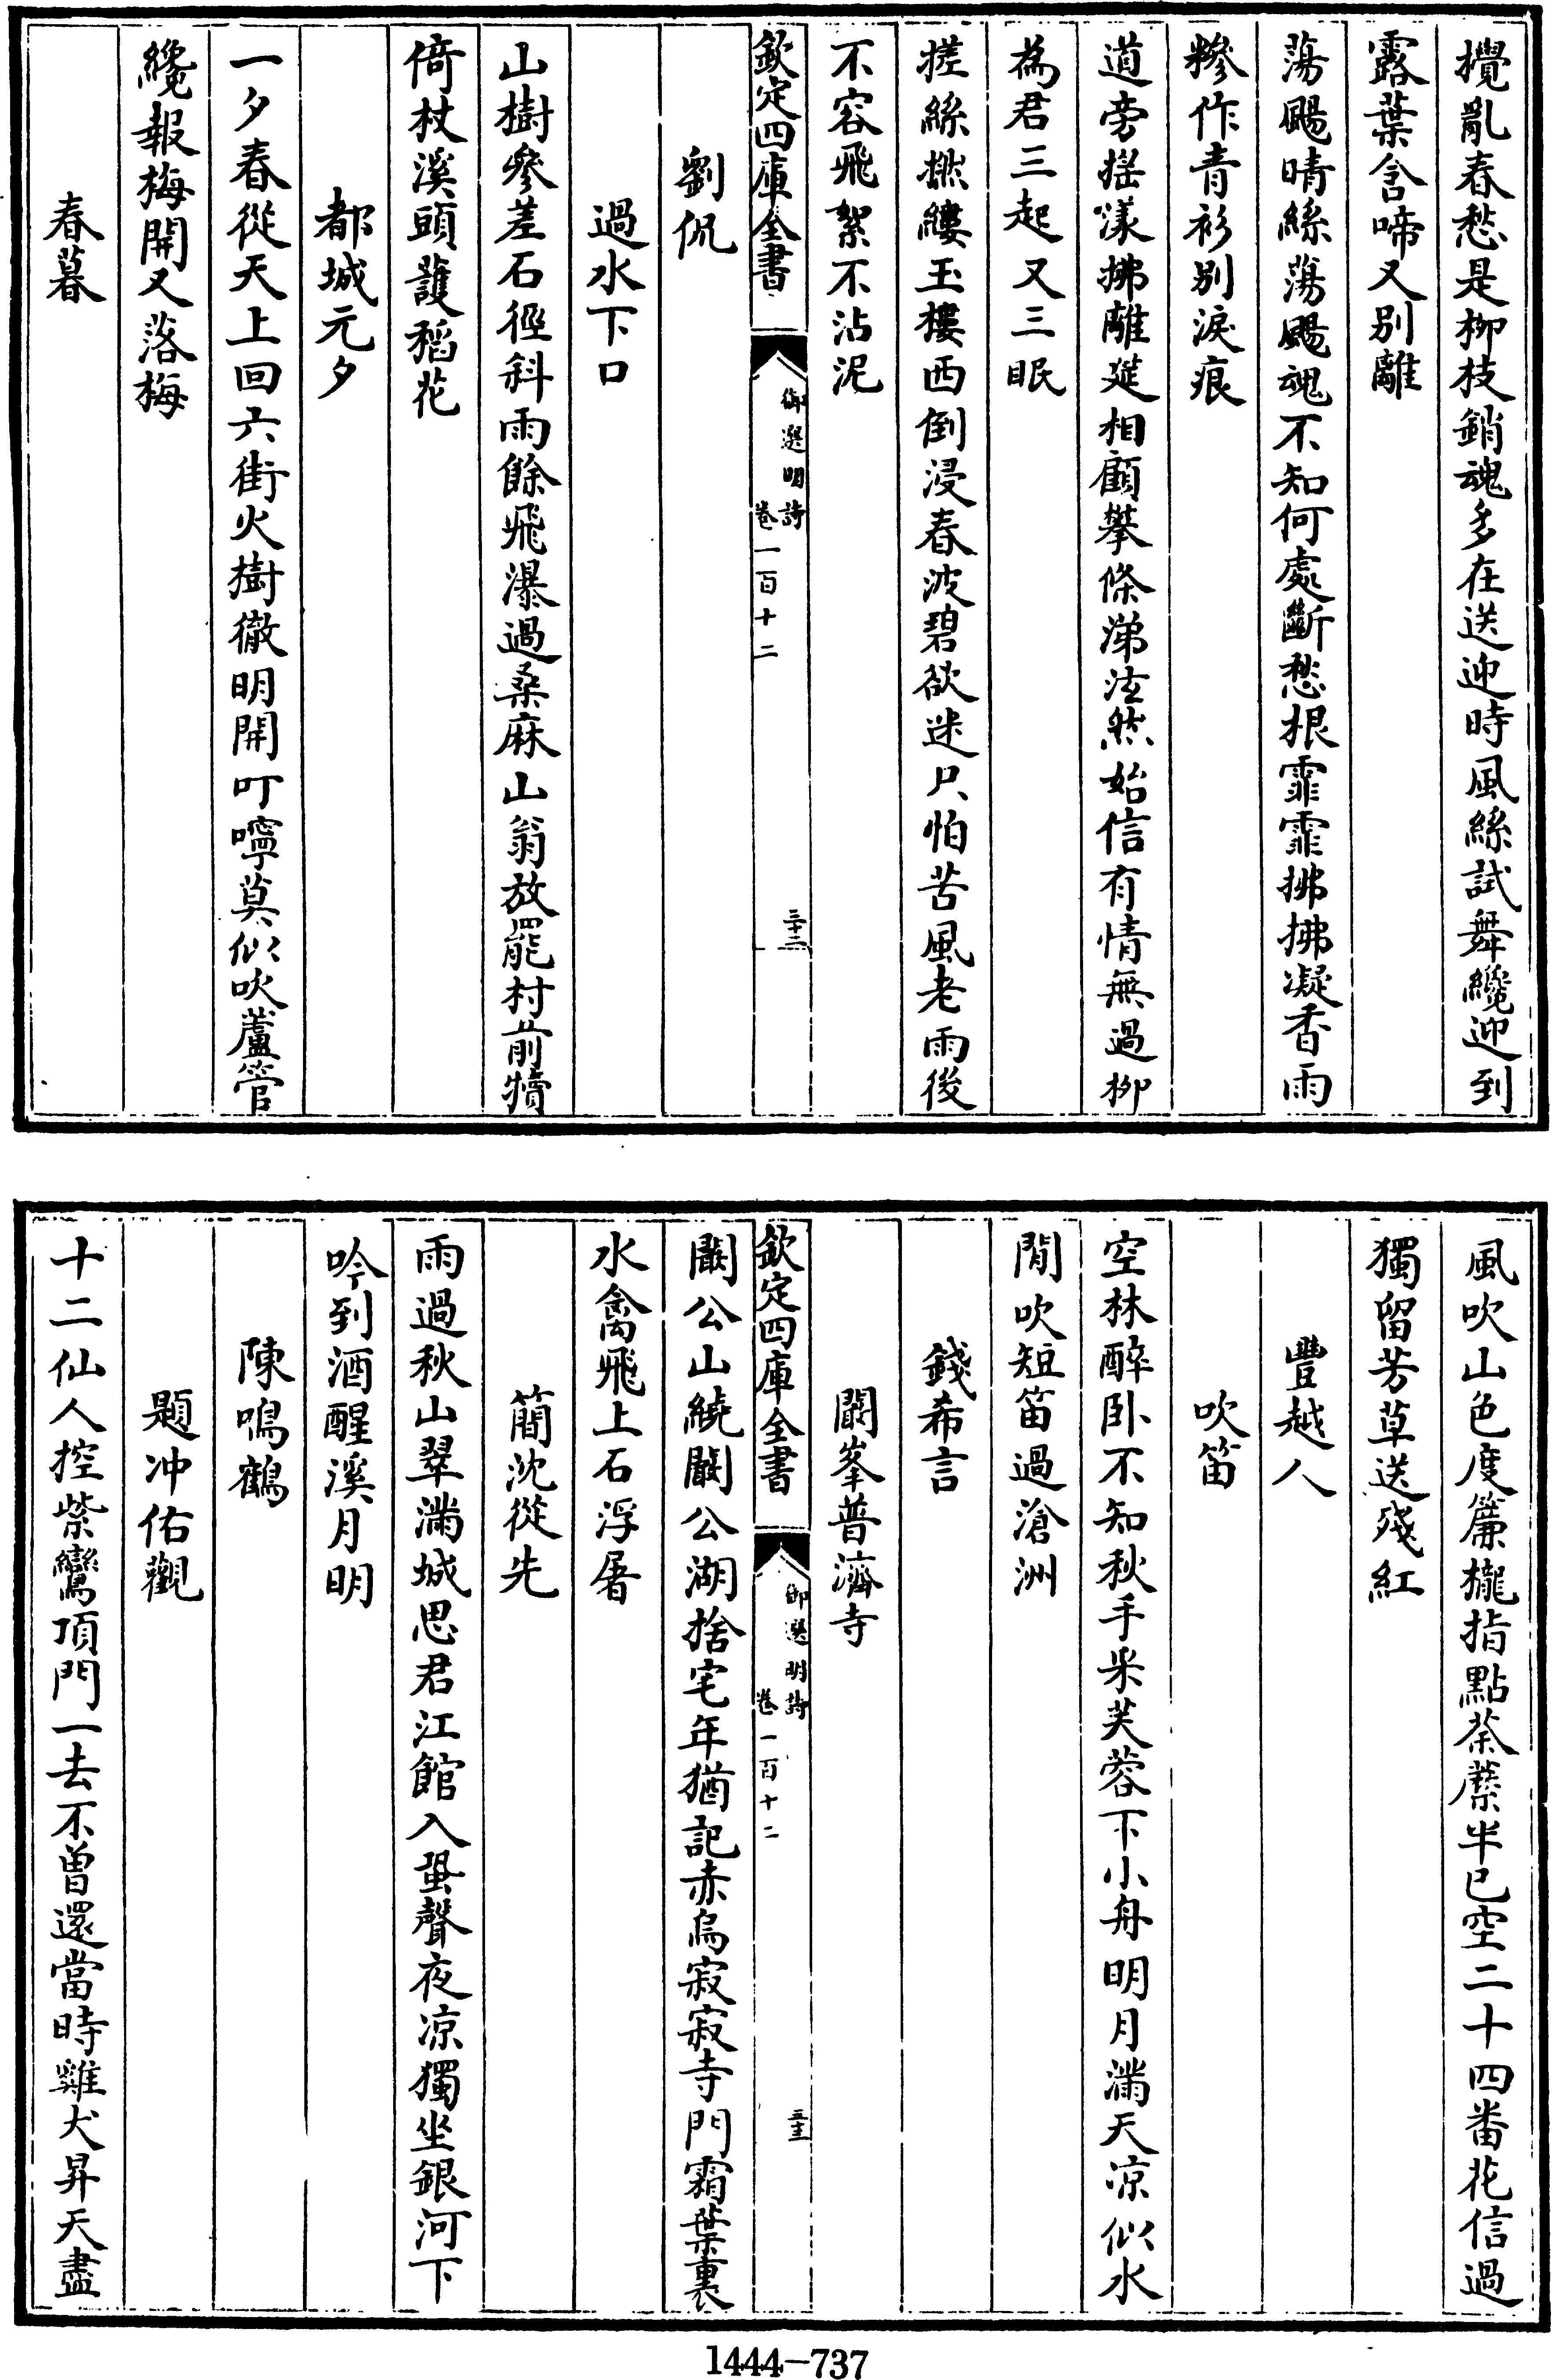 攪亂春愁是柳枝銷魂多在送迎時風絲試舞纔迎到
露葉含啼又别離
蕩颺晴絲蕩颺魂不知何處斷愁根霏霏拂拂凝香雨
糝作青衫别淚痕
道旁揺漾拂離筵相顧攀條涕泫然始信有情無過柳
為君三起又三眠
搓絲撚縷玉樓西倒浸春波碧欲迷只怕苦風老雨後
不容飛絮不沾泥
欽定四庫全書
御選明詩
卷一百十二
三十二
劉侃
過水下口
山樹參差石徑斜雨餘飛瀑過桑麻山翁放罷村前犢
倚杖溪頭護稻花
都城元夕
一夕春從天上回六街火樹徹明開叮嚀莫似吹蘆管
纔報梅開又落梅
春暮
風吹山色度簾櫳指點荼䕷半已空二十四番花信過
獨留芳草送殘紅
豐越人
吹笛
空林醉卧不知秋手采芙蓉下小舟明月滿天凉似水
閒吹短笛過滄洲
錢希言
闞峯普濟寺
欽定四庫全書
御選明詩
卷一百十二
三十三
闞公山繞闞公湖捨宅年猶記赤烏寂寂寺門霜葉裏
水禽飛上石浮屠
簡沈從先
雨過秋山翠滿城思君江館入蛩聲夜凉獨坐銀河下
吟到酒醒溪月明
陳鳴鶴
題冲佑觀
十二仙人控紫鸞頂門一去不曽還當時雞犬昇天盡
1444-737